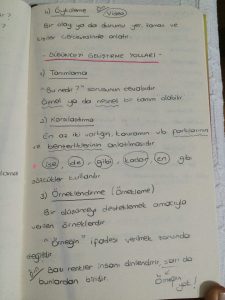 b) Öyküleme → Video
Bir olay ya da durumu yer, zaman ve
kişiler çerçevesinde anlatır.
- DÜŞÜNCEYİ GELİŞTİRME YOLLARI -
1) Tanımlama
"Bu nedir?" sorusunun cevabıdır.
Öznel ya da nesnel bir tanım olabilir.
2) Karşılaştırma
En az iki varlığın, kavramın vb. farklarının
ve benzerliklerinin anlatılmasıdır.
ise, de, gibi, kadar, en gibi
sözcükler kullanılır.
3) Örneklendirme (Örnekleme)
Bir düşünceyi desteklemek amacıyla
verilen örneklerdir.
"Örneğin" ifadesi verilmek zorunda
değildir.
Bazı renkler insanı dinlendirir, sarı da
bunlardan biridir.
Örneğin
yok!